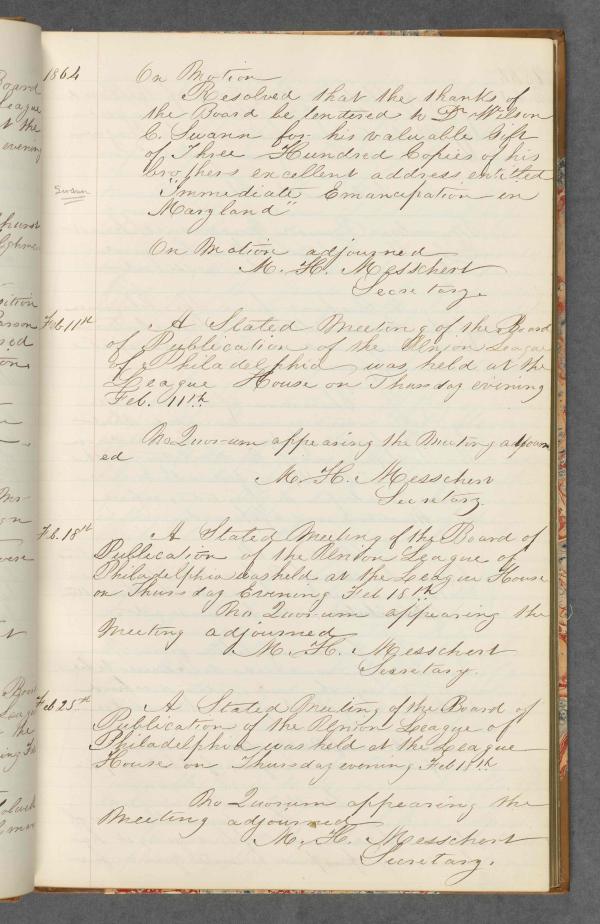 1864
On Motion
Resolved that the thanks of
the Board be tendered to Dr Wilson
C. Swann for his valuable Gift
of Three Hundred Copies of his
brothers excellent address entitled
Swann
"Immediate Emancipation in
Maryland"
On Motion adjourned
M. H. Messchert
Secretary.
Feb 11th
A Stated Meeting of the Board
of Publication of the Union League
of Philadelphia was held at the
League House on Thursday evening
Feb. 11th
No Quor-um appearing the Meeting adjourn
ed
M. H. Messchert
Secretary.
Feb. 18th
A Stated Meeting of the Board of
Publication of the Union League of
Philadelphia was held at the League House
on Thursday Evening Feb 18th
No Quor-um appearing the
Meeting adjourned
M. H. Messchert
Secretary.
Feb 25th
A Stated Meeting of the Board of
Publication of the Union League of
Philadelphia was held at the League
House on Thursday evening Feb 18th
No Quorum appearing the
Meeting adjourned
M. H. Messchert
Secretary.